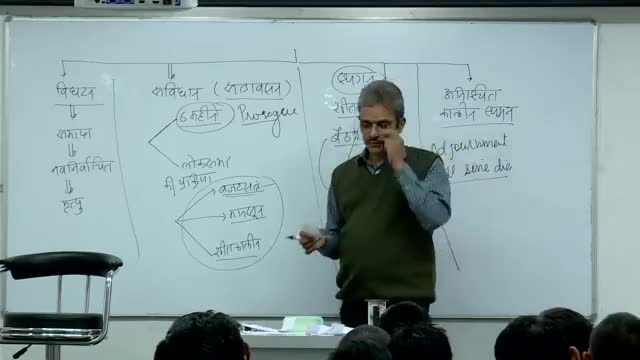 विघटन
समाप्त
नवनिर्वाचित
मृत्यु
सत्रावसान (सत्रावसान)
6 महीने
Prorogue
लोकसभा
की प्रक्रिया
बजट सत्र
मानसून
शीतकालीन
स्थगन
शीत
बैठ
अनिश्चित
कालीन स्थगन
Adjournment
sine die